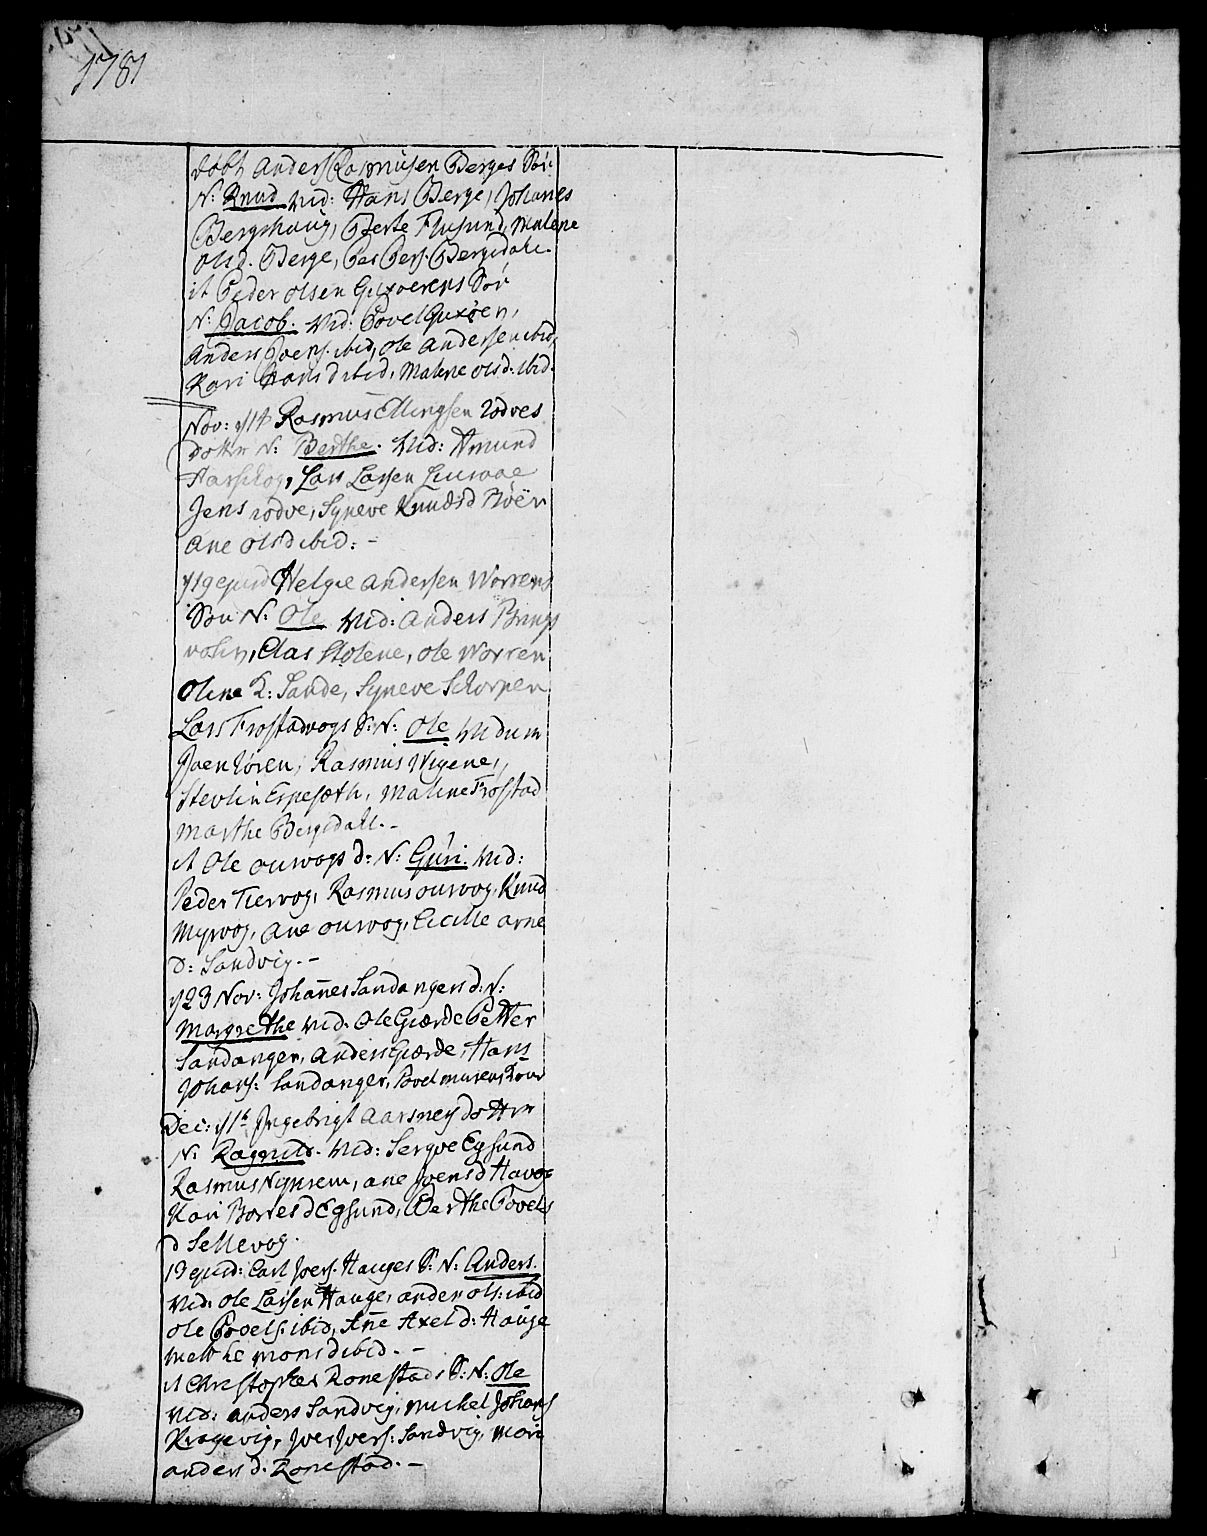 1781
døbt Anders Rasmusen Berges Søn
N: Knud Vid: Hans Berge, Johanes
Bergshaug, Berte Flusund, Malene
Olsd. Berge, Pers. Bergsdall.
it Peder Olsen Guxøerens Søn
N: Jacob. Vid: Povel Guxøen,
Anders Joens. ibid, Ole Andersen ibid,
Kari Hansd ibid, Malene Olsd: ibid.
Nov: 14 Rasmus Ellingsen Rødves
dotter N: Berthe. Vid: Amund
Lars Larsen
Jens Rødve, Syneve Knudsd
Ane Olsd ibid: -
19 ejusd Helge Andersen Worrens
Søn N: Ole Vid: Anders Brings
Clas Stølene, Ole Worren
Oline K: Sande, Syneve Schorpen
Lars Frostadvogs S: N: Ole Vidum
Joen Røren, Rasmus Vigene,
Stevlin Espesæth, Maline Frostad
Marthe Bergsdall. -
it Ole Ourvogs d: N: Guri. Vid:
Peder Tiervog, Rasmus Ourvog, Knud
Myrvog, Ane Ourvog, Cicille Arne
d: Sandvig. -
23 Nov: Johannes Sandangers d: N:
Margrethe Vid. Ole Giærde Petter
Sandanger, Anders Giærde, Hans
Johans: Sandanger, Povel
Dec: 1 Ingebrigt Aarsnes dotter
N: Ragnild. Vid: Serqve Egsund
Rasmus Nykrem, Ane Joensd Havog
Kari Borresd Egsund, Berthe Povels
d Sellevog.
13 ejusd: Carl Joens. Hauges S: N: Anders.
Vid: Ole Larsen Hauge, Anders Ols: ibid
Ole Povels. ibid, Ane Axel d: Hauge
Monsd ibid. -
it Christopher Ronestads S: N: Ole
Vid: Anders Sandvig, Michel Johans
Kragevig, Iver Ivers: Sandvig, Mari
Anders d. Ronestad. -